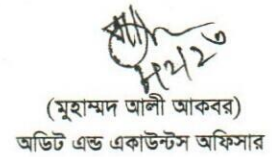 (মুহাম্মদ আলী আকবর)
অডিট এন্ড একাউন্টস অফিসার